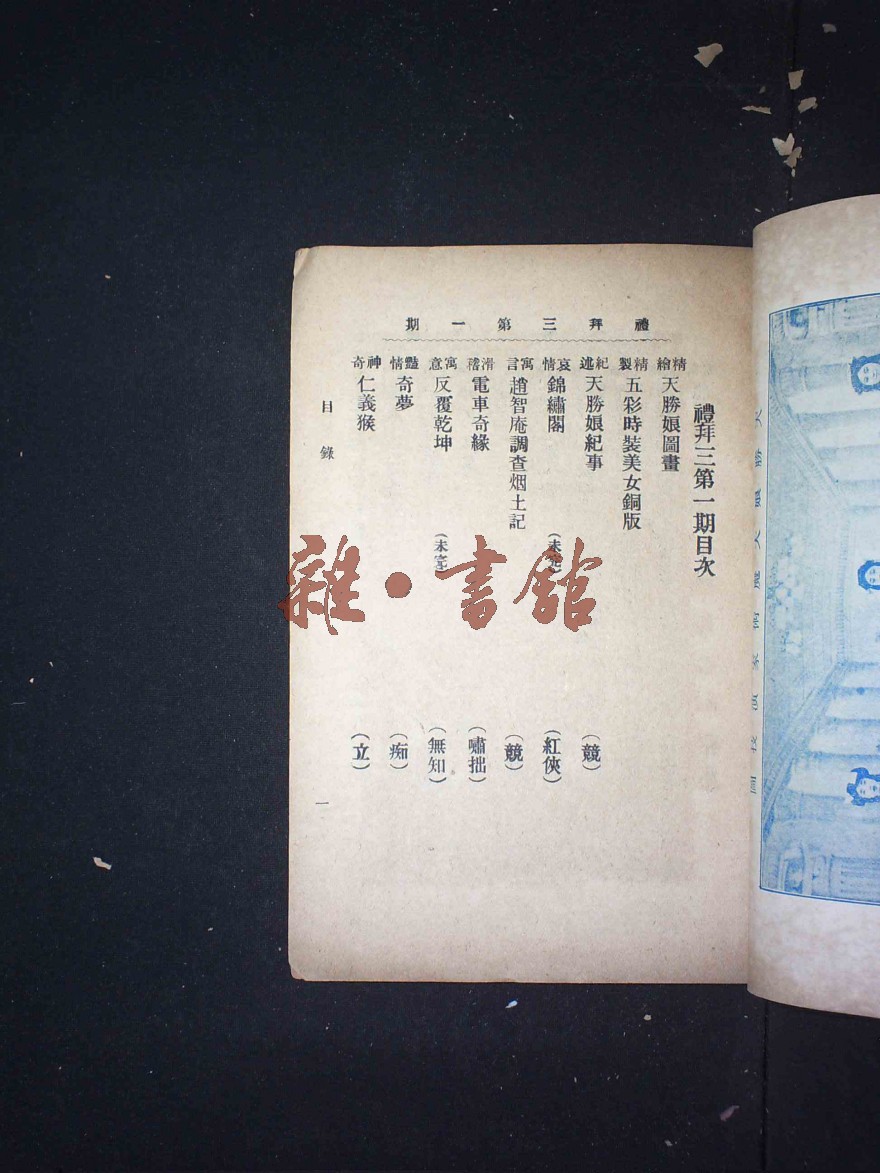 禮拜三第一期
禮拜三第一期目次
精繪 天勝娘圖畫
精製 五彩時裝美女銅版
紀述 天勝娘紀事 (競)
哀情 錦繡閣 (未完) (紅俠)
寓言 趙智庵調查烟土記 (競)
滑稽 電車奇緣 (嘯拙)
寓意 反覆乾坤 (未完) (無知)
豔情 奇夢 (痴)
神奇 仁義猴 (立)
目錄
一
天勝娘大魔術家演技圖
雜·書館